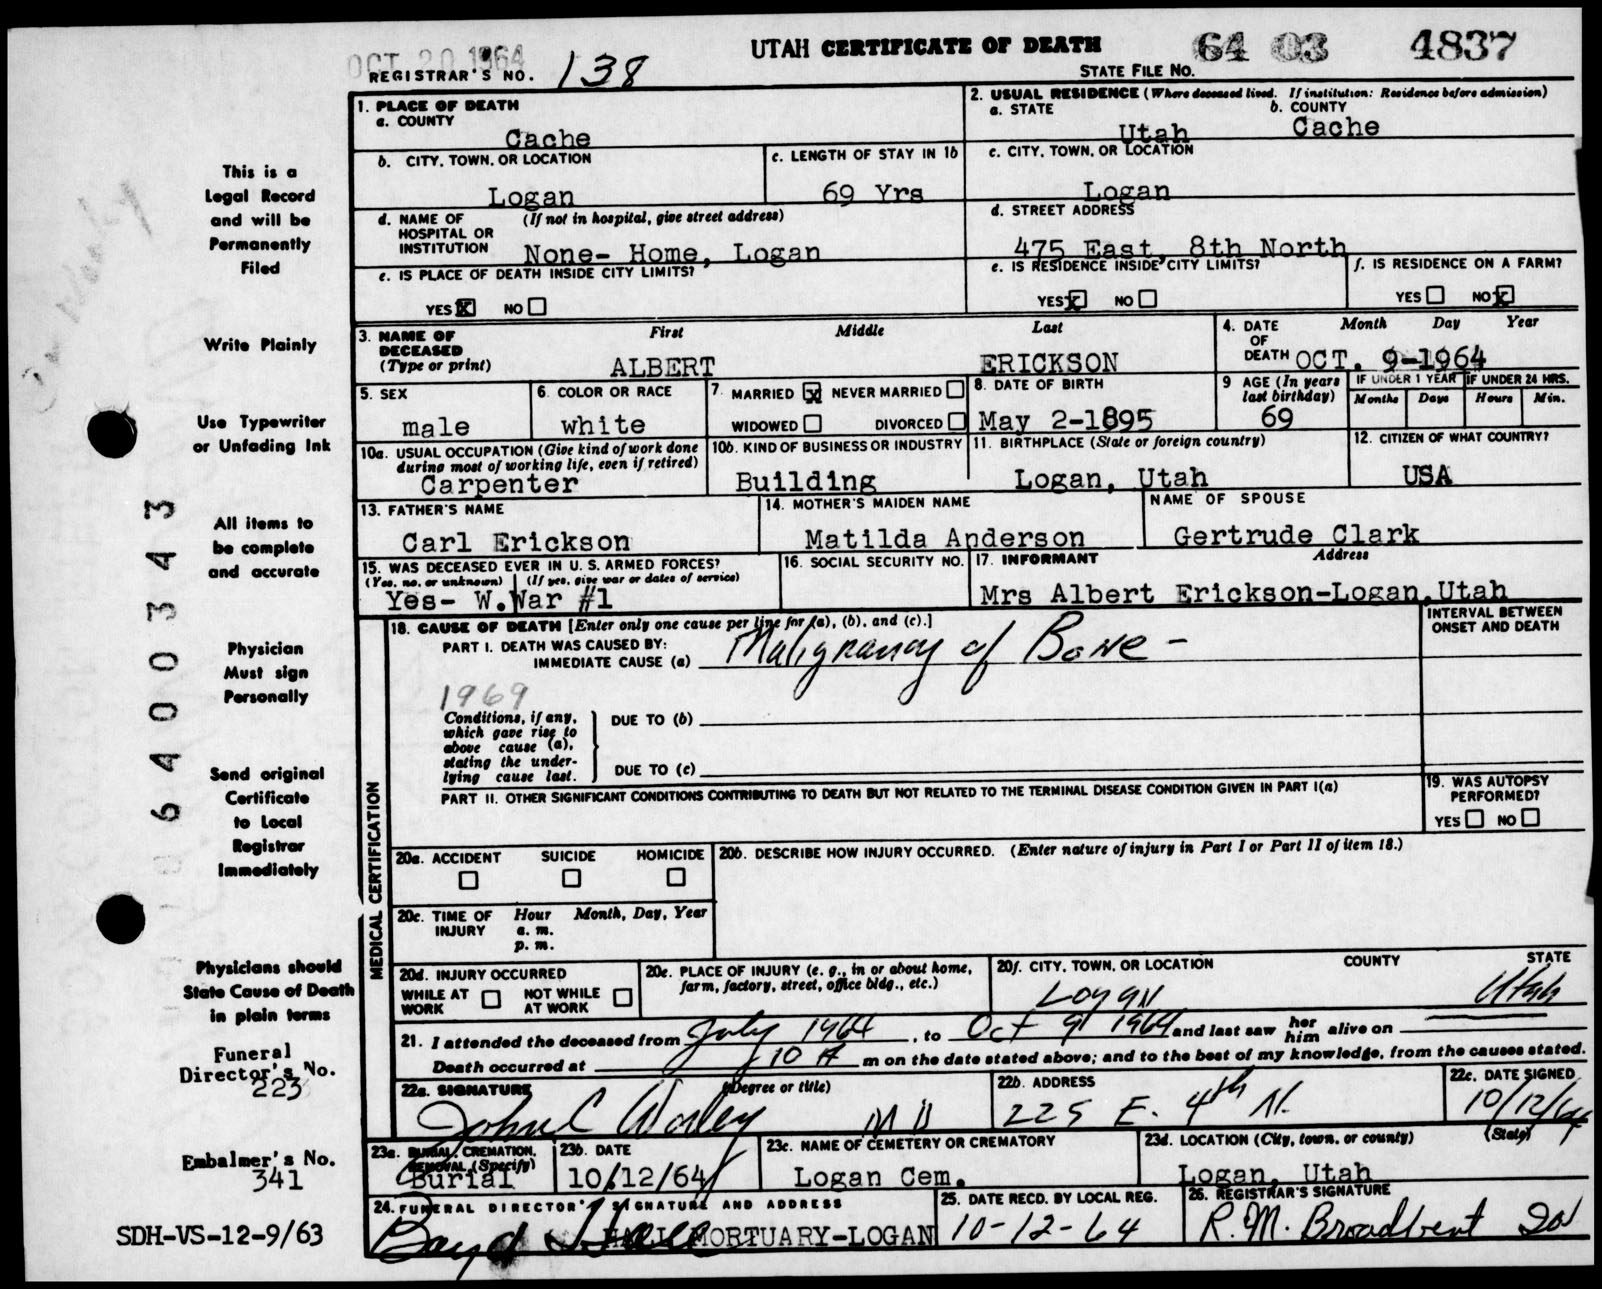 OCT 20 1964
UTAH CERTIFICATE OF DEATH
64 03 4837
REGISTRAR'S NO. 138
STATE FILE NO.
1. PLACE OF DEATH
a. COUNTY
Cache
2. USUAL RESIDENCE (Where deceased lived. If institution: Residence before admission)
a. STATE
Utah
b. COUNTY
Cache
b. CITY, TOWN, OR LOCATION
Logan
c. LENGTH OF STAY IN 1b
69 Yrs
c. CITY, TOWN, OR LOCATION
Logan
d. NAME OF HOSPITAL OR INSTITUTION
(If not in hospital, give street address)
None- Home, Logan
d. STREET ADDRESS
475 East, 8th North
e. IS PLACE OF DEATH INSIDE CITY LIMITS?
YES X NO
e. IS RESIDENCE INSIDE CITY LIMITS?
YES X NO
f. IS RESIDENCE ON A FARM?
YES NO X
3. NAME OF DECEASED
(Type or print)
First Middle Last
ALBERT ERICKSON
4. DATE OF DEATH
Month Day Year
OCT. 9-1964
5. SEX
male
6. COLOR OR RACE
white
7. MARRIED X NEVER MARRIED
WIDOWED DIVORCED
8. DATE OF BIRTH
May 2-1895
9 AGE (In years last birthday)
69
IF UNDER 1 YEAR
Months Days
IF UNDER 24 HRS.
Hours Min.
10a. USUAL OCCUPATION (Give kind of work done during most of working life, even if retired)
Carpenter
10b. KIND OF BUSINESS OR INDUSTRY
Building
11. BIRTHPLACE (State or foreign country)
Logan, Utah
12. CITIZEN OF WHAT COUNTRY?
USA
13. FATHER'S NAME
Carl Erickson
14. MOTHER'S MAIDEN NAME
Matilda Anderson
NAME OF SPOUSE
Gertrude Clark
15. WAS DECEASED EVER IN U. S. ARMED FORCES?
(Yes, no, or unknown) (If yes, give war or dates of service)
Yes- W.War #1
16. SOCIAL SECURITY NO.
17. INFORMANT Address
Mrs Albert Erickson-Logan,Utah
18. CAUSE OF DEATH [Enter only one cause per line for (a), (b), and (c).]
PART I. DEATH WAS CAUSED BY:
IMMEDIATE CAUSE (a) Malignancy of Bone -
INTERVAL BETWEEN ONSET AND DEATH
1969
Conditions, if any, which gave rise to above cause (a), stating the underlying cause last.
DUE TO (b)
DUE TO (c)
PART II. OTHER SIGNIFICANT CONDITIONS CONTRIBUTING TO DEATH BUT NOT RELATED TO THE TERMINAL DISEASE CONDITION GIVEN IN PART I(a)
19. WAS AUTOPSY PERFORMED?
YES NO
MEDICAL CERTIFICATION
20a. ACCIDENT SUICIDE HOMICIDE
20b. DESCRIBE HOW INJURY OCCURRED. (Enter nature of injury in Part I or Part II of item 18.)
20c. TIME OF INJURY
Hour Month, Day, Year
a. m.
p. m.
20d. INJURY OCCURRED
WHILE AT WORK NOT WHILE AT WORK
20e. PLACE OF INJURY (e. g., in or about home, farm, factory, street, office bldg., etc.)
20f. CITY, TOWN, OR LOCATION COUNTY STATE
Logan Utah
21. I attended the deceased from July 1964, to Oct 9 1964 and last saw her him alive on
Death occurred at 10 A m on the date stated above; and to the best of my knowledge, from the causes stated.
22a. SIGNATURE (Degree or title)
John C Worley MD
22b. ADDRESS
225 E. 4th N.
22c. DATE SIGNED
10/12/64
23a. BURIAL, CREMATION, REMOVAL (Specify)
Burial
23b. DATE
10/12/64
23c. NAME OF CEMETERY OR CREMATORY
Logan Cem.
23d. LOCATION (City, town, or county) (State)
Logan, Utah
24. FUNERAL DIRECTOR'S SIGNATURE AND ADDRESS
Boyd Hall HALL MORTUARY-LOGAN
25. DATE RECD. BY LOCAL REG.
10-12-64
26. REGISTRAR'S SIGNATURE
R.M. Broadbent
This is a
Legal Record
and will be
Permanently
Filed
Write Plainly
Use Typewriter
or Unfading Ink
All items to
be complete
and accurate
Physician
Must sign
Personally
Send original
Certificate
to Local
Registrar
Immediately
Physicians should
State Cause of Death
in plain terms
Funeral
Director's No.
223
Embalmer's No.
341
SDH-VS-12-9/63
6400343